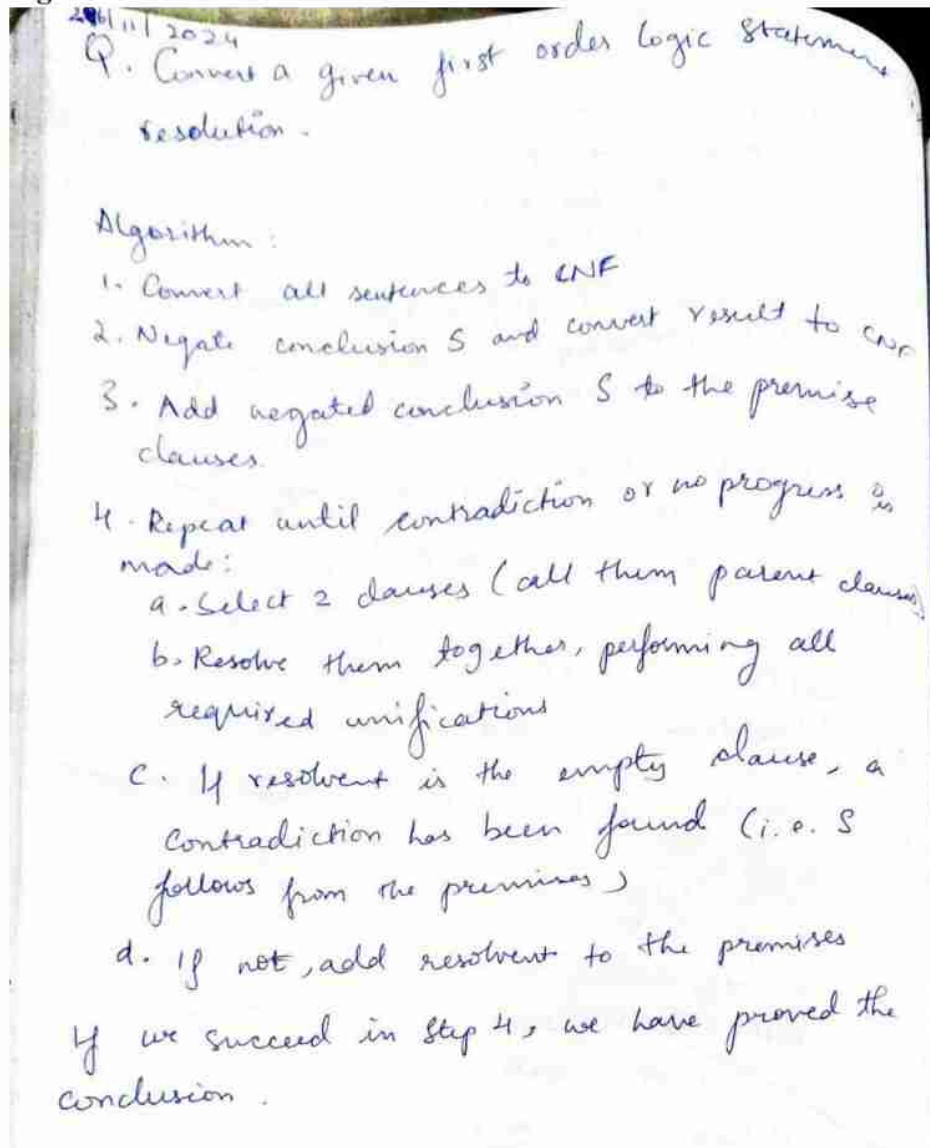 26/11/2024
Q. Convert a given first order logic statement
resolution.
Algorithm:
1. Convert all sentences to CNF
2. Negate conclusion S and convert result to CNF
3. Add negated conclusion S to the premise
clauses.
4. Repeat until contradiction or no progress is
made:
a. Select 2 clauses (call them parent clauses)
b. Resolve them together, performing all
required unifications
c. If resolvent is the empty clause, a
contradiction has been found (i.e. S
follows from the premises)
d. If not, add resolvent to the premises
If we succeed in Step 4, we have proved the
conclusion.